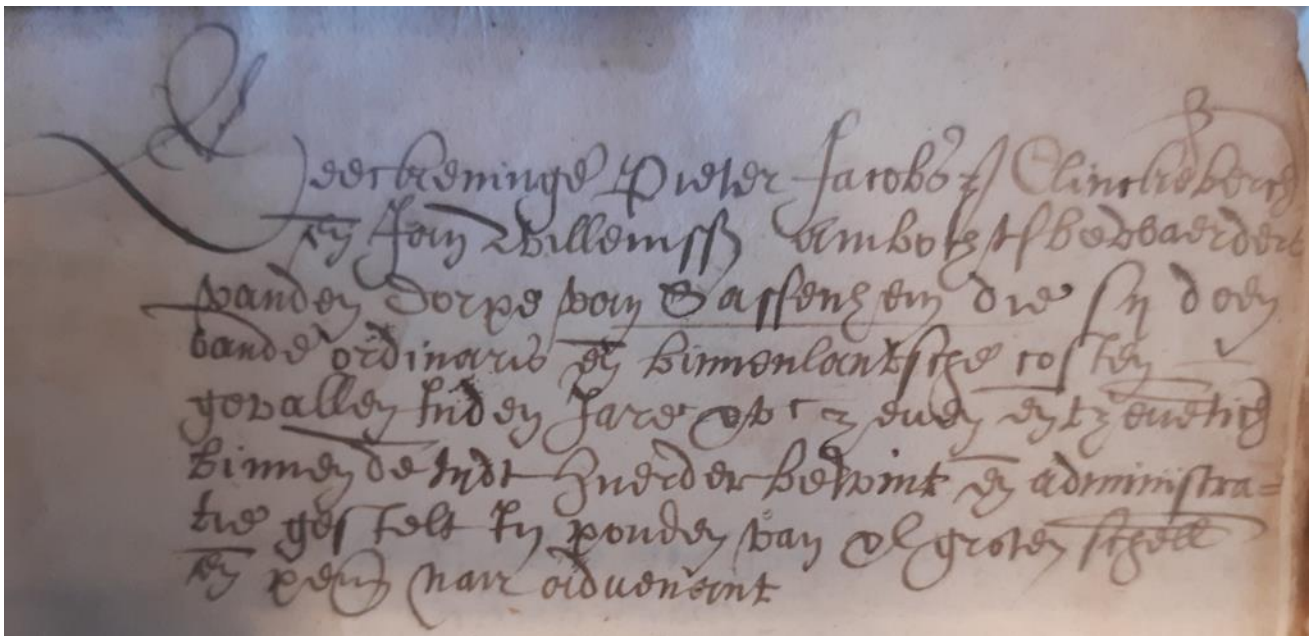 Reeckeninge Pieter Jacobsz Clinckeberch
en Jan Willemss Ambochtsbewaerders
vanden dorpe van Sassenhem die sy doen
vande ordinaris en binnenlantsche costen
gevallen inden Jare xvc zeven entzeventich
binnen de tijdt huerder bewint en administra=
tie gestelt in ponden van xl groten schell
en penn naer advenant